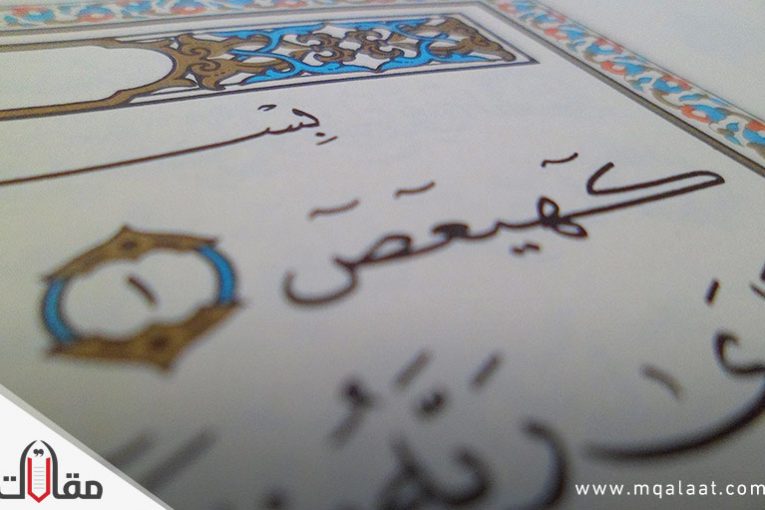 بِسْ
كٓهيعٓصٓ ١
ىٰ رَبَّهُۥ
مقالات
www.mqalaat.com